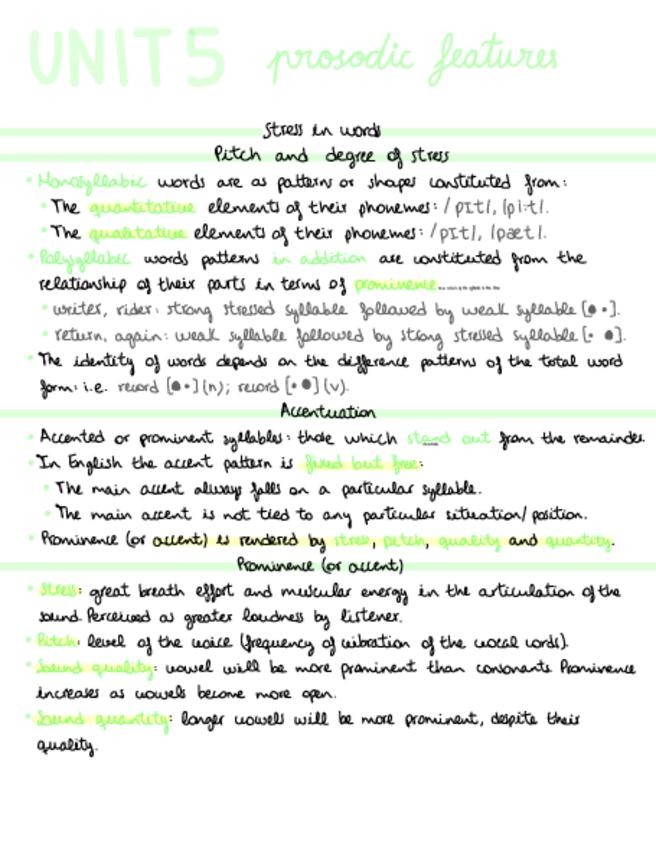 UNIT 5 prosodic features
Stress in words
Pitch and degree of stress
• Monosyllabic words are as patterns or shapes constituted from:
• The quantitative elements of their phonemes: /pɪt/, /piːt/.
• The qualitative elements of their phonemes: /pɪt/, /pæt/.
• Polysyllabic words patterns in addition are constituted from the
relationship of their parts in terms of prominence
• writer, rider: strong stressed syllable followed by weak syllable [● •].
• return, again: weak syllable followed by strong stressed syllable [• ●].
• The identity of words depends on the difference patterns of the total word
form: i.e. record [● •] (n); record [• ●] (v).
Accentuation
• Accented or prominent syllables: those which stand out from the remainder.
• In English the accent pattern is fixed but free:
• The main accent always falls on a particular syllable.
• The main accent is not tied to any particular situation/position.
• Prominence (or accent) is rendered by stress, pitch, quality and quantity.
Prominence (or accent)
• Stress: great breath effort and muscular energy in the articulation of the
sound. Perceived as greater loudness by listener.
• Pitch: level of the voice (frequency of vibration of the vocal cords).
• Sound quality: vowel will be more prominent than consonants. Prominence
increases as vowels become more open.
• Sound quantity: longer vowels will be more prominent, despite their
quality.